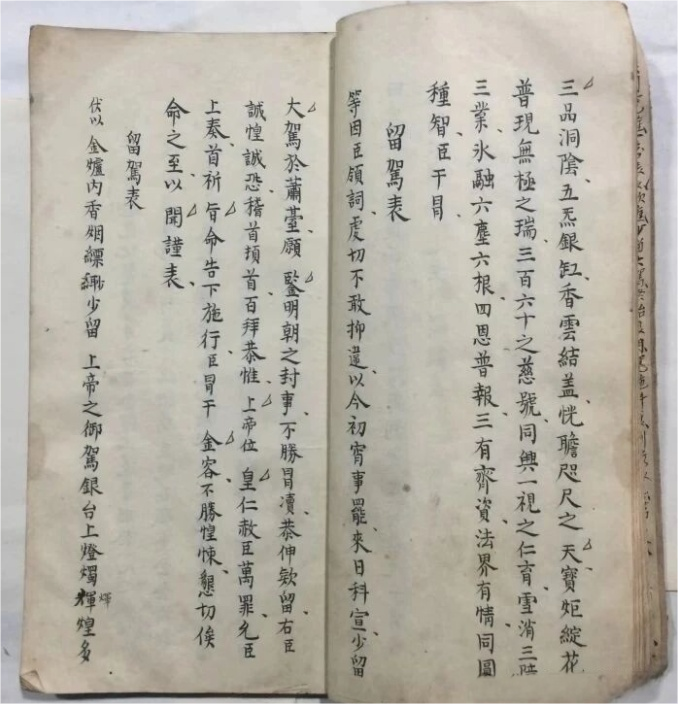 三品洞陰五炁銀缸香雲結盖恍瞻咫尺之 天寶炬綻花
普現無極之瑞三百六十之慈號同興一視之仁育雪消三
三業氷融六塵六根四恩普報三有齊資法界有情同圓
種智臣干冐
留駕表
等因臣領詞虔切不敢抑違以今初宵事罷來日科宣少留
大駕於蕭臺願 鑒明朝之封事不勝冐凟恭伸欵留右臣
誠惶誠恐稽首頓首百拜恭惟 上帝位 皇仁赦臣萬罪允臣
上奏首祈 旨命告下施行臣冐干 金容不勝惶悚懇切俟
命之至以 聞謹表
留駕表
伏以 金爐內香烟縹緲少留 上帝之御駕銀台上燈燭輝煌多
輝